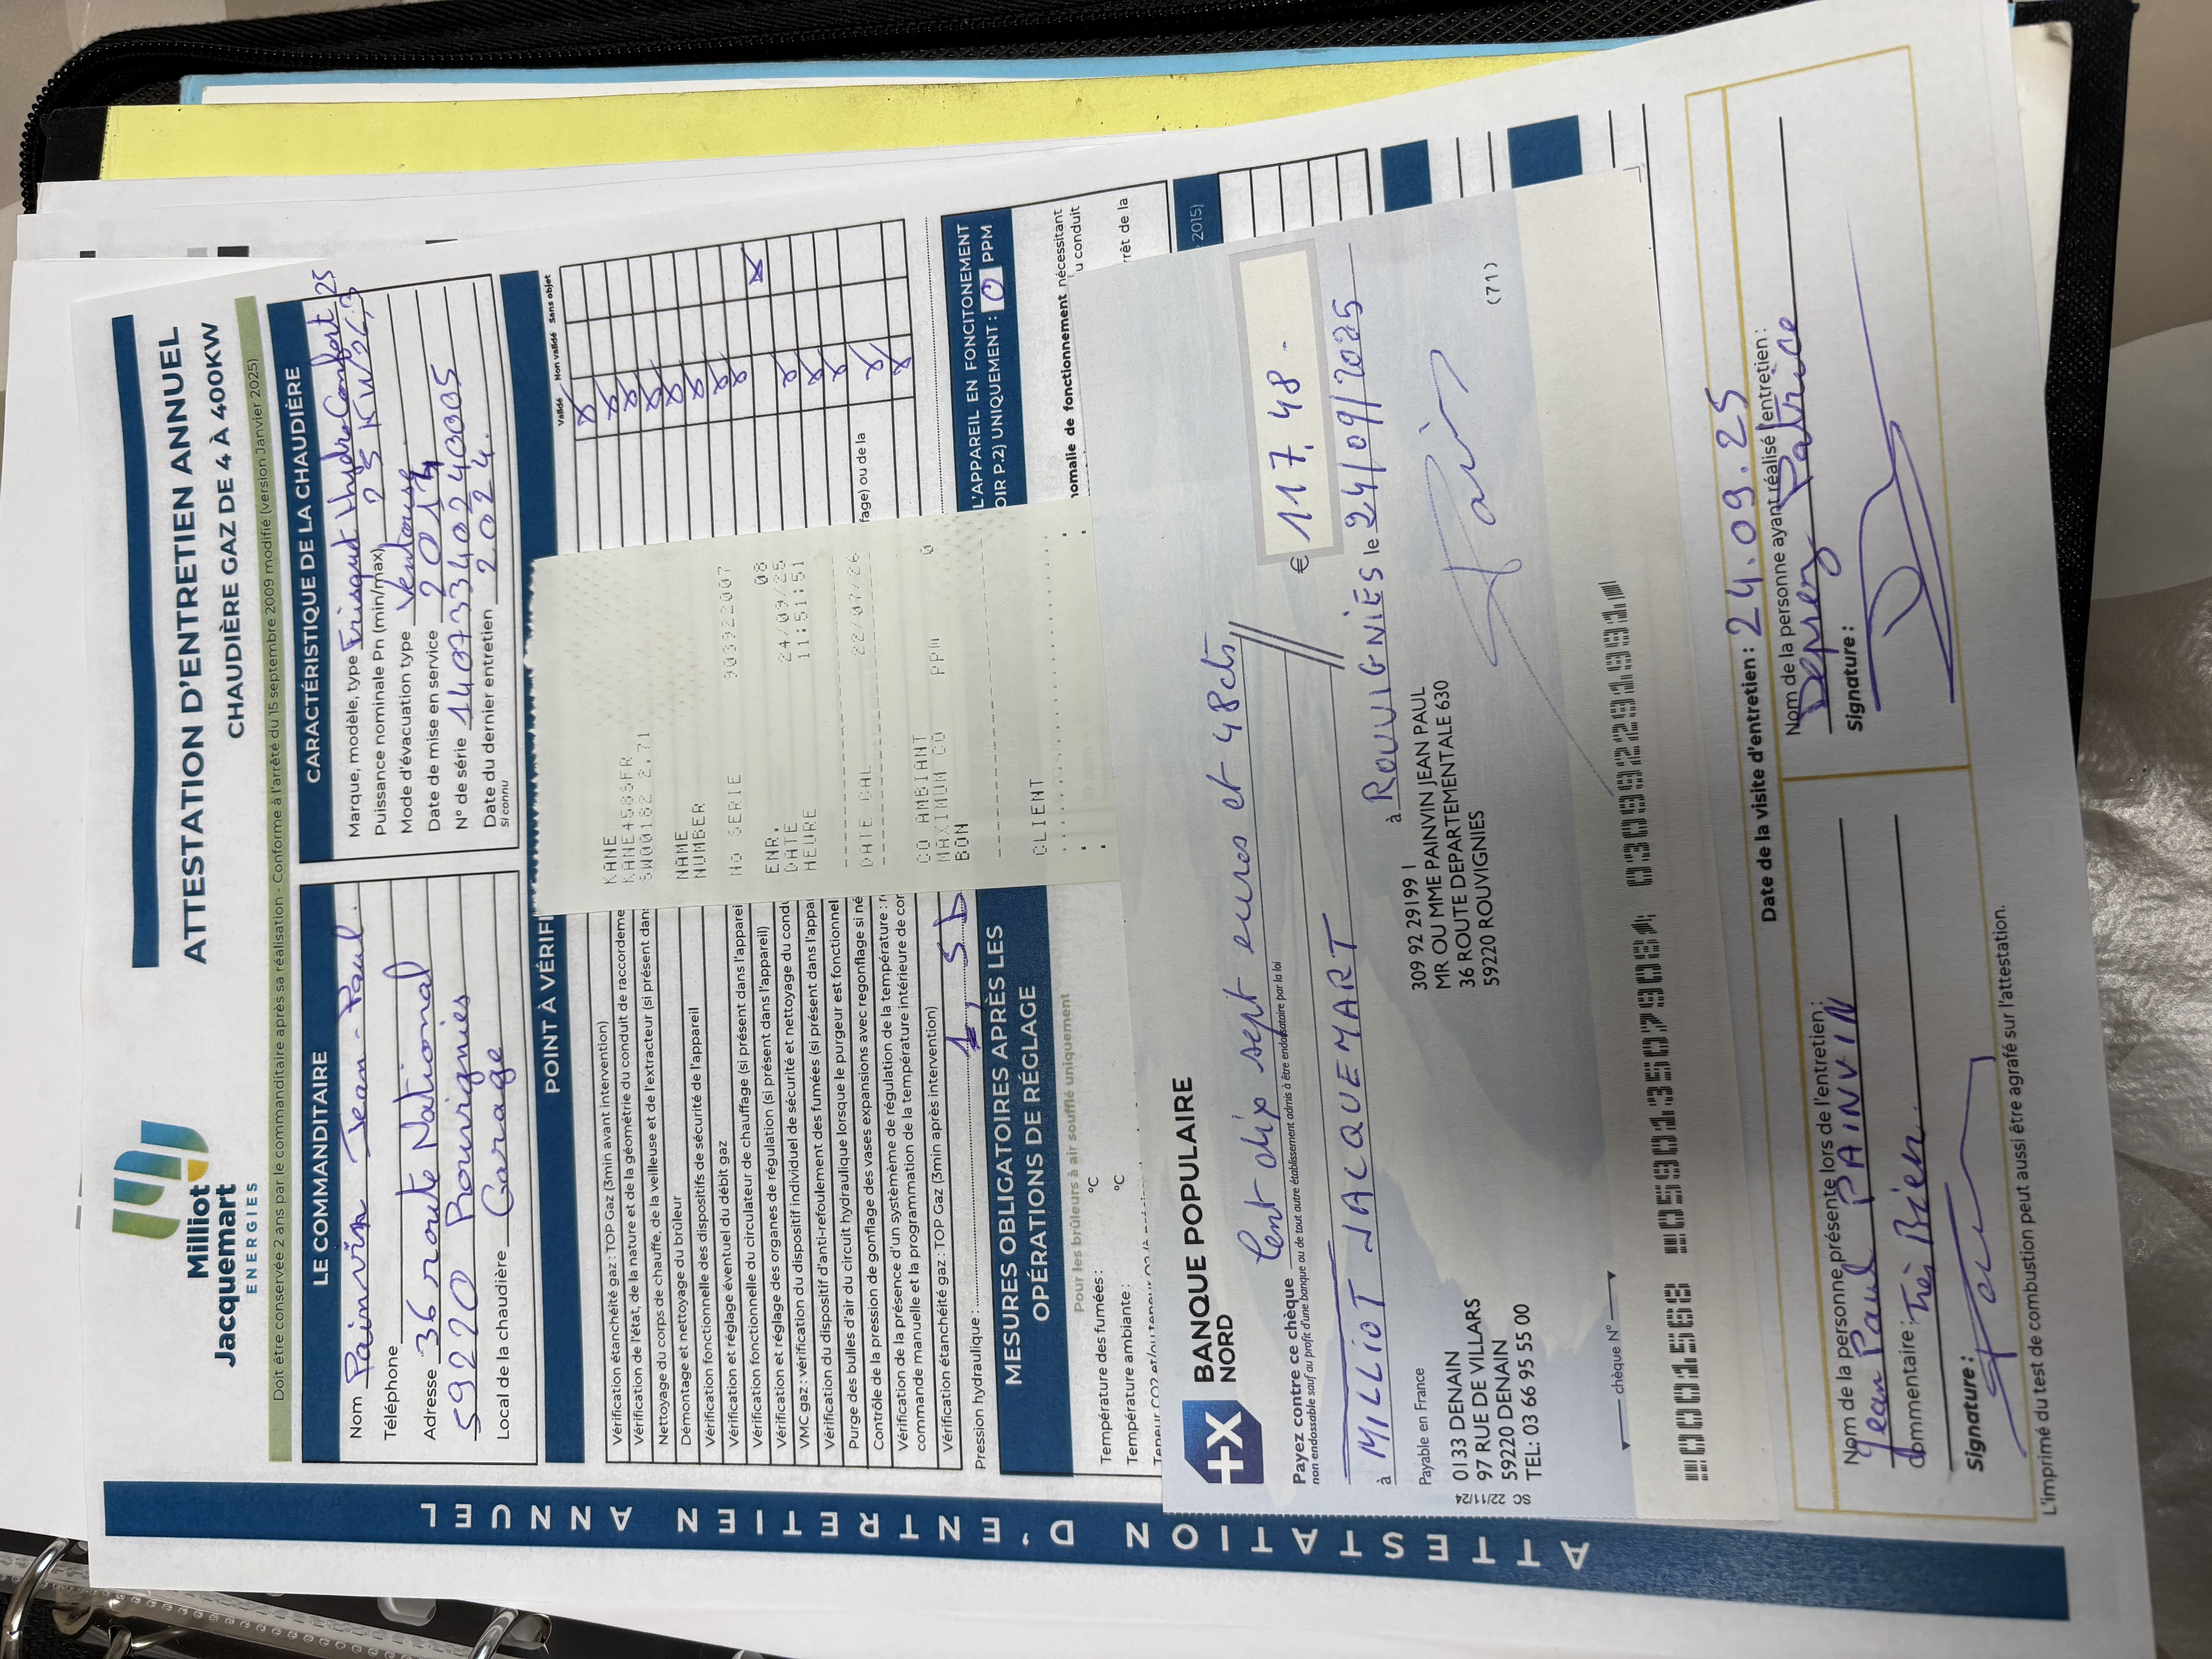 Milliot
Jacquemart
ENERGIES
ATTESTATION D'ENTRETIEN ANNUEL
CHAUDIÈRE GAZ DE 4 À 400KW
Doit être conservée 2 ans par le commanditaire après sa réalisation - Conforme à l'arrêté du 15 septembre 2009 modifié (version Janvier 2025)
LE COMMANDITAIRE
Nom Painvin Jean-Paul
Téléphone
Adresse 36 route National
59220 Rouvignies
Local de la chaudière Garage
CARACTÉRISTIQUE DE LA CHAUDIÈRE
Marque, modèle, type Frisquet HydroConfort 25
Puissance nominale Pn (min/max) 25 KW 26,3
Mode d'évacuation type Ventouse
Date de mise en service 2014
N° de série
Date du dernier entretien 2024.
Si connu
POINT À VÉRIFI
Validé Non validé Sans objet
Vérification étanchéité gaz : TOP Gaz (3min avant intervention)
Vérification de l'état, de la nature et de la géométrie du conduit de raccordeme
Nettoyage du corps de chauffe, de la veilleuse et de l'extracteur (si présent dans
Démontage et nettoyage du brûleur
Vérification fonctionnelle des dispositifs de sécurité de l'appareil
Vérification et réglage éventuel du débit gaz
Vérification fonctionnelle du circulateur de chauffage (si présent dans l'apparei
Vérification et réglage des organes de régulation (si présent dans l'appareil)
VMC gaz : vérification du dispositif individuel de sécurité et nettoyage du condu
Vérification du dispositif d'anti-refoulement des fumées (si présent dans l'appa
Purge des bulles d'air du circuit hydraulique lorsque le purgeur est fonctionnel
Contrôle de la pression de gonflage des vases expansions avec regonflage si né
Vérification de la présence d'un systmème de régulation de la température : r
fage) ou de la
commande manuelle et la programmation de la température intérieure de cor
Vérification étanchéité gaz : TOP Gaz (3min après intervention)
Pression hydraulique :
KANE
KANE4503FR
SW00182 2.71
NAME
NUMBER
No SERIE 903922007
ENR. 08
DATE 24/09/25
HEURE 11:51:51
DATE CAL 22/07/26
CO AMBIANT
MAXIMUM CO PPM 0
BON
CLIENT
MESURES OBLIGATOIRES APRÈS LES
OPÉRATIONS DE RÉGLAGE
Pour les brûleurs à air soufflé uniquement
Température des fumées : °C
Température ambiante : °C
L'APPAREIL EN FONCITONEMENT
OIR P.2) UNIQUEMENT : 0 PPM
nomalie de fonctionnement nécessitant
u conduit
rrêt de la
2015)
BANQUE POPULAIRE
NORD
€ 117.48.
Payez contre ce chèque Cent dix sept euros et 48cts
non endossable sauf au profit d'une banque ou de tout autre établissement admis à être endossataire par la loi
à MILLIOT JACQUEMART
à ROUVIGNIES le 24/09/2025
Payable en France
0133 DENAIN
97 RUE DE VILLARS
59220 DENAIN
TEL: 03 66 95 55 00
SC 22/11/24
309 92 29199 1
MR OU MME PAINVIN JEAN PAUL
36 ROUTE DEPARTEMENTALE 630
59220 ROUVIGNIES
(71)
chèque N°
Date de la visite d'entretien : 24.09.25
Nom de la personne présente lors de l'entretien :
Jean Paul PAINVIN
Commentaire : Très Bien.
Signature :
Nom de la personne ayant réalisé l'entretien :
Deprez Patrice
Signature :
L'imprimé du test de combustion peut aussi être agrafé sur l'attestation.
ATTESTATION D'ENTRETIEN ANNUEL